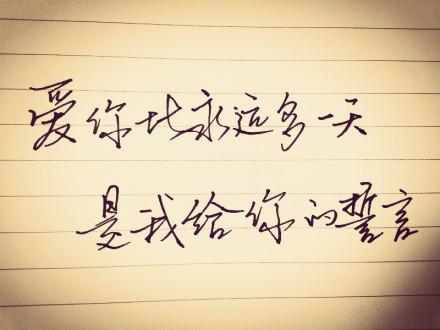 爱你比永远多一天
是我给你的誓言